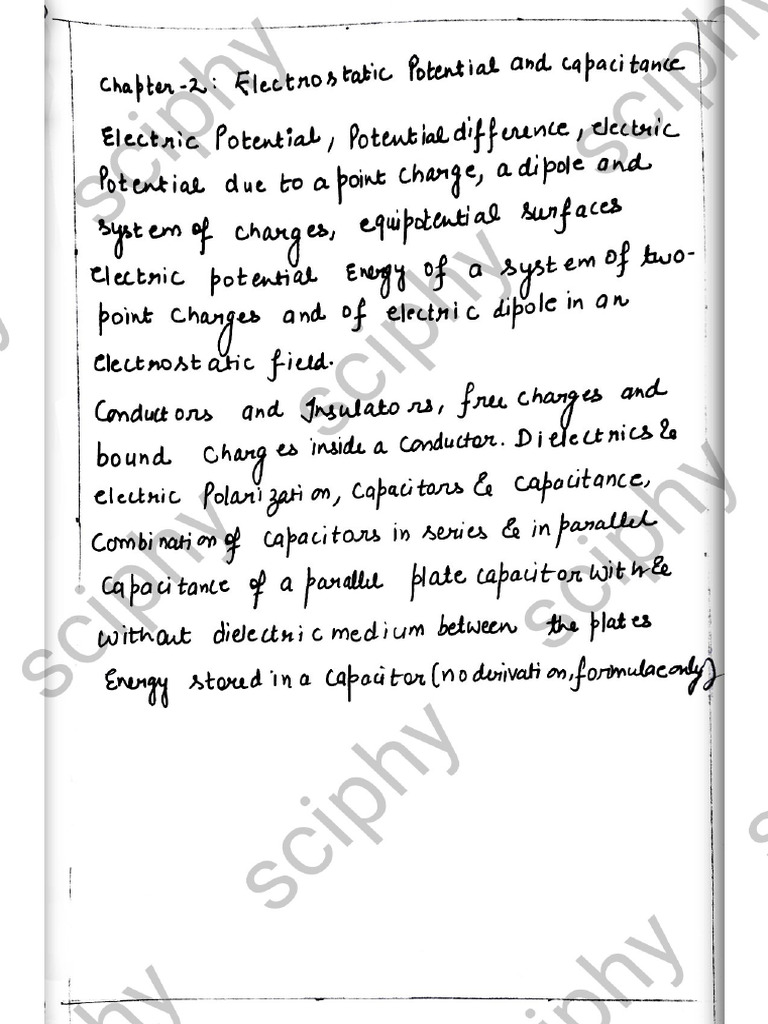 Chapter-2: Electrostatic Potential and Capacitance
Electric Potential, Potential difference, electric
Potential due to a point charge, a dipole and
system of charges, equipotential surfaces
electric potential Energy of a system of two-
point charges and of electric dipole in an
electrostatic field.
Conductors and Insulators, free charges and
bound charges inside a conductor. Dielectrics &
electric Polarization, Capacitors & Capacitance,
Combination of capacitors in series & in parallel
Capacitance of a parallel plate capacitor with &
without dielectric medium between the plates
Energy stored in a capacitor (no derivation, formulae only)
sciphy
sciphy
sciphy
sciphy
sciphy
sciphy
sciphy
sciphy